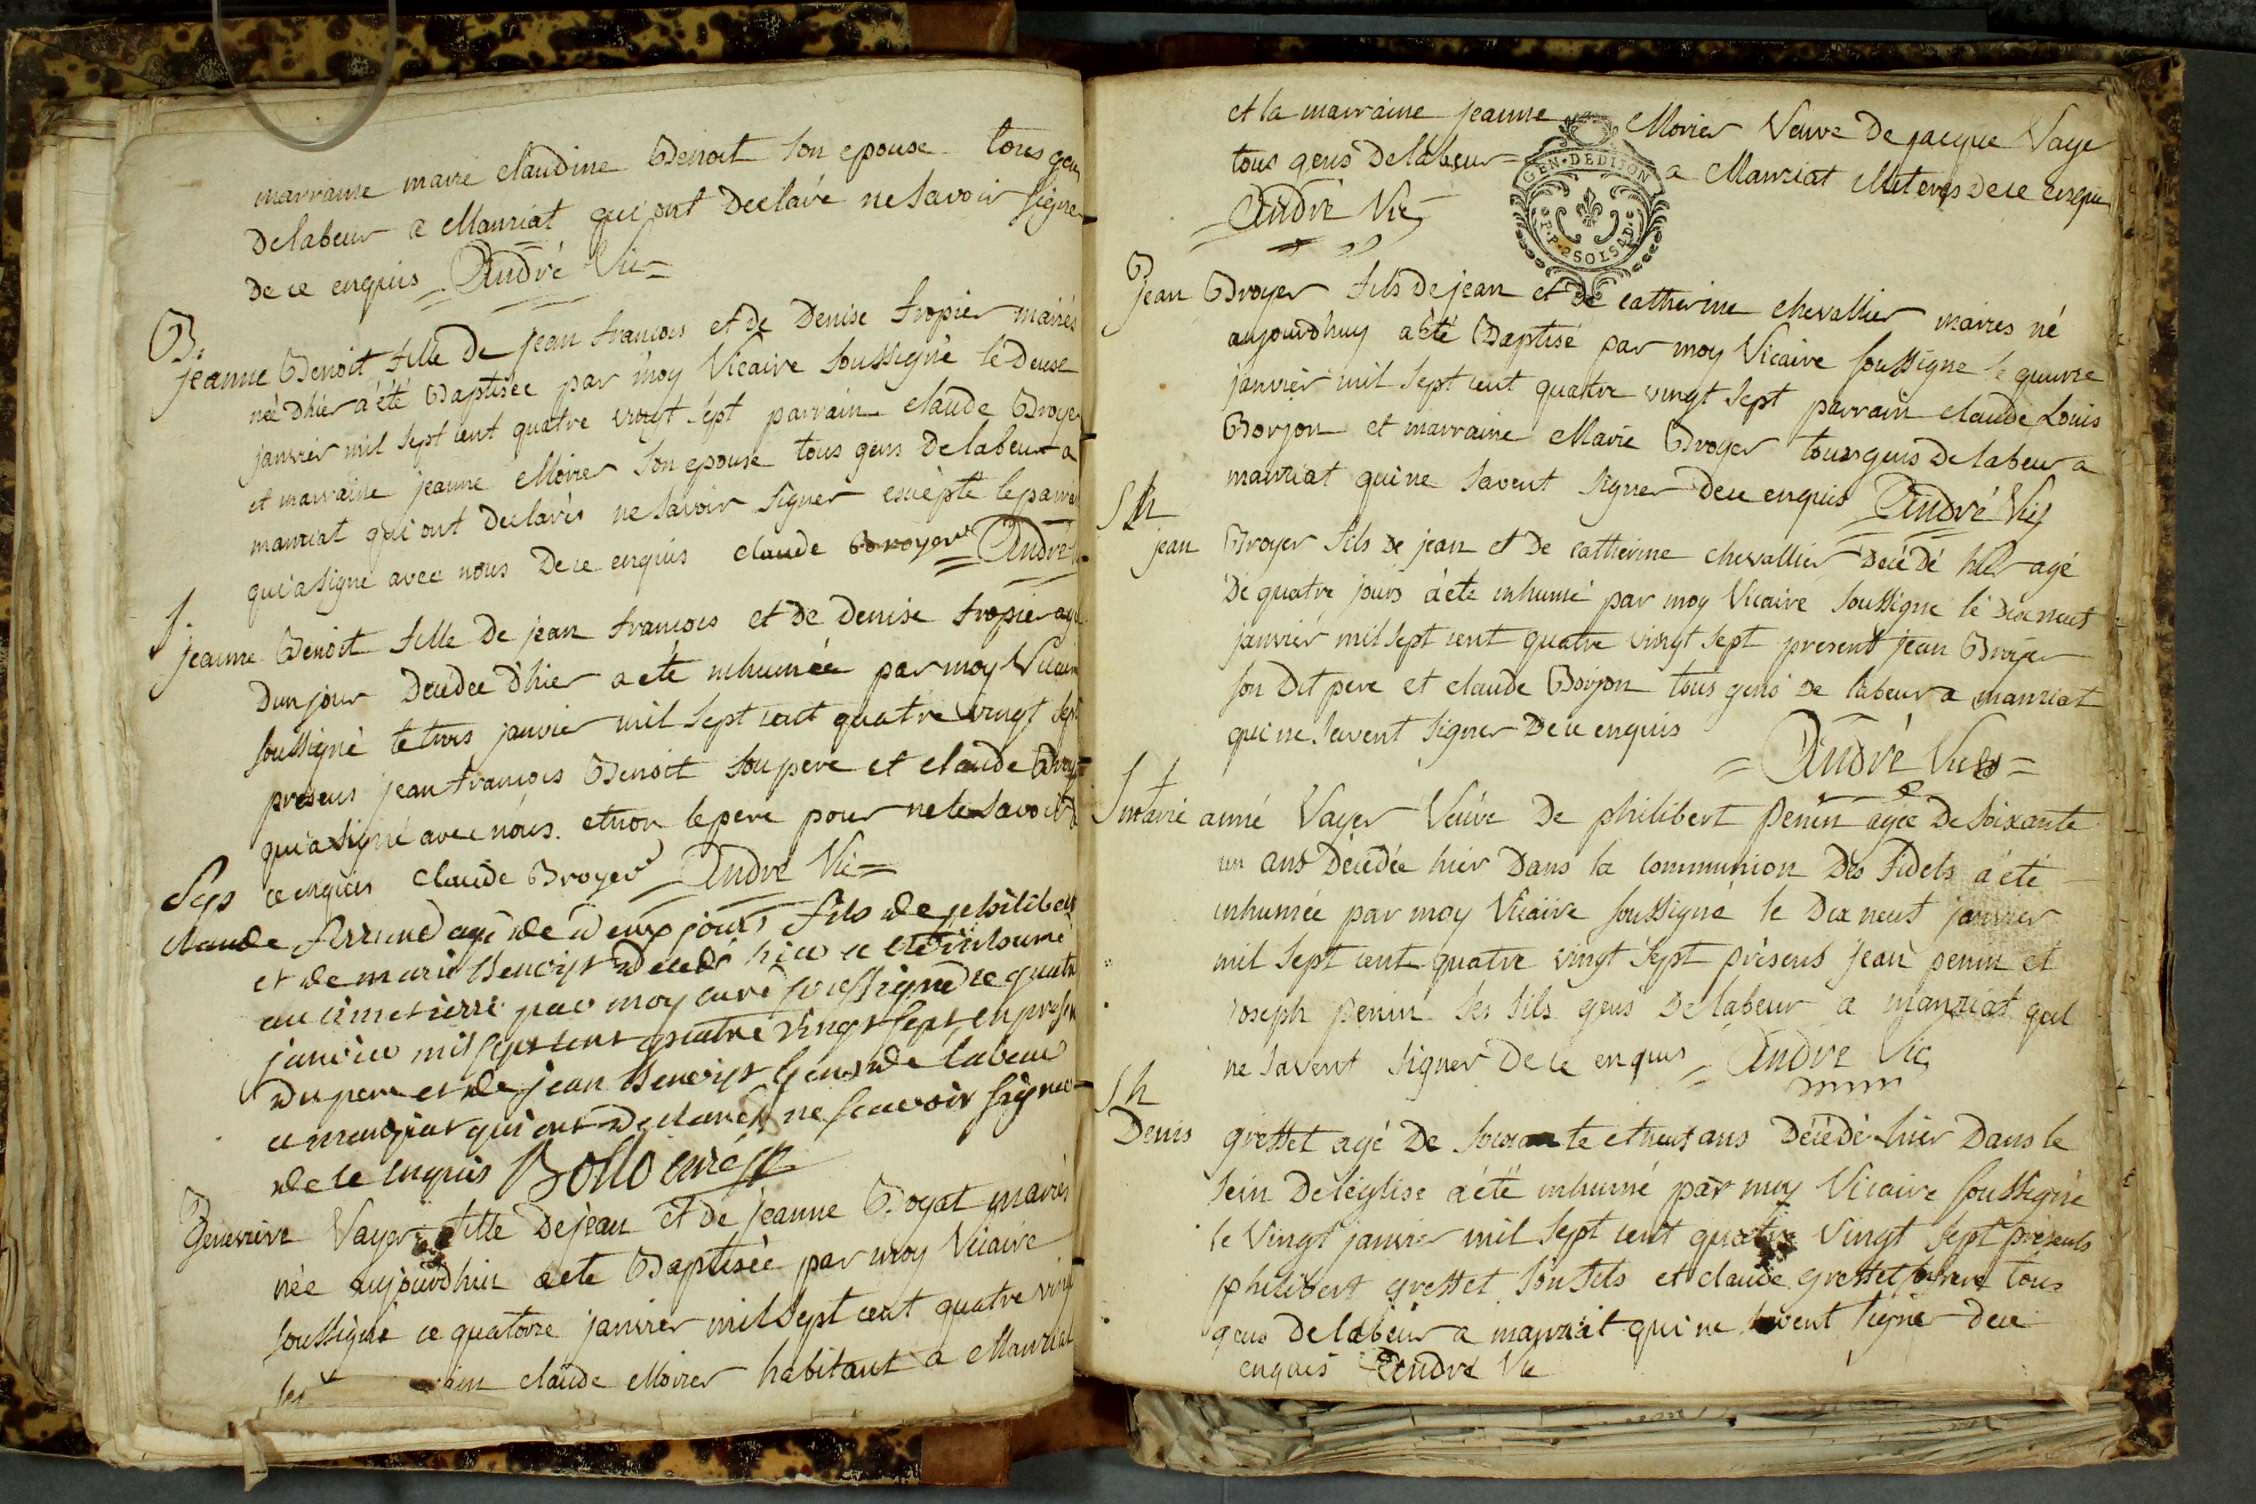 marraine marie claudine Benoit son epouse tous gens
Delabeur a Manziat qui ont Declaré ne savoir signer
De ce enquis André Vic
B.
jeanne Benoit fille De jean francois et de Denise fropier mariés
née Dhier a été Baptisée par moy Vicaire soussigné le Deuse
janvier mil sept cent quatre vingt sept parrain claude Broyer
et marraine jeanne Moirer son epouse tous gens Delabeur a
manziat qui ont declarés ne savoir signer excèpté le parrain
qui a signé avec nous De ce enquis claude Broyer André
S.
jeanne Benoit fille De jean francois et de Denise fropier agée
Dun jour Decedee Dhier a été inhumée par moy Vicaire
soussigné le trois janvier mil sept cent quatre vingt sept
presens jean francois Benoit son pere et claude Broyer
qui a signé avec nous et non le pere pour ne le savoir
ce enquis claude Broyer André Vic
Sep
claude agé de deux jours fils de philibert
et de marie Benoist decedé hier a été inhumé
au cimetierre par moy curé soussigné le quatre
janvier mil sept cent quatre vingt sept en presence
du pere et de jean Benoist gens de labeur
a manziat qui ont declarés ne scavoir signer
de ce enquis curé
Genevieve Vayer fille De jean et de jeanne Boyat mariés
née aujourdhui a ete Baptisée par moy Vicaire
soussigné ce quatorze janvier mil sept cent quatre vingt
claude Moirer habitant a Manziat
et la marraine jeanne Morier Veuve De jacque Vaye
tous gens Delabeur a Manziat De ce enquis
André Vic
GEN·DEDIJON
P.P. 2 SOLS 4 D.
B
jean Broyer fils De jean et de catherine chevallier mariés né
aujourdhuy a été Baptisé par moy Vicaire soussigné le quinze
janvier mil sept cent quatre vingt sept parrain claude Louis
Borjon et marraine Marie Broyer tous gens De labeur a
manziat qui ne savent signer De ce enquis André Vic
Sh
jean Broyer fils De jean et De catherine chevallier Decédé hier agé
De quatre jours a été inhumé par moy Vicaire soussigné le dix neuf
janvier mil sept cent quatre vingt sept present jean Broyer
son Dit pere et claude Borjon tous gens De labeur a manziat
qui ne savent signer De ce enquis
André Vic
S
marie anné Vayer Veuve De philibert penin agée De soixante
un ans Décedée hier Dans la communion Des fidels a été
inhumée par moy Vicaire soussigné le Dix neuf janvier
mil sept cent quatre vingt sept présens jean penin et
joseph penin ses fils gens Delabeur a manziat qui
ne savent signer De ce enquis André Vic
Sh
Denis gresset agé De soixante et neuf ans Décédé hier Dans le
sein De l'église a été inhumé par moy Vicaire soussigné
le Vingt janvier mil sept cent quatre Vingt sept présents
philibert gresset son fils et claude gresset tous
gens De labeur a manziat qui ne savent signer De ce
enquis André Vic